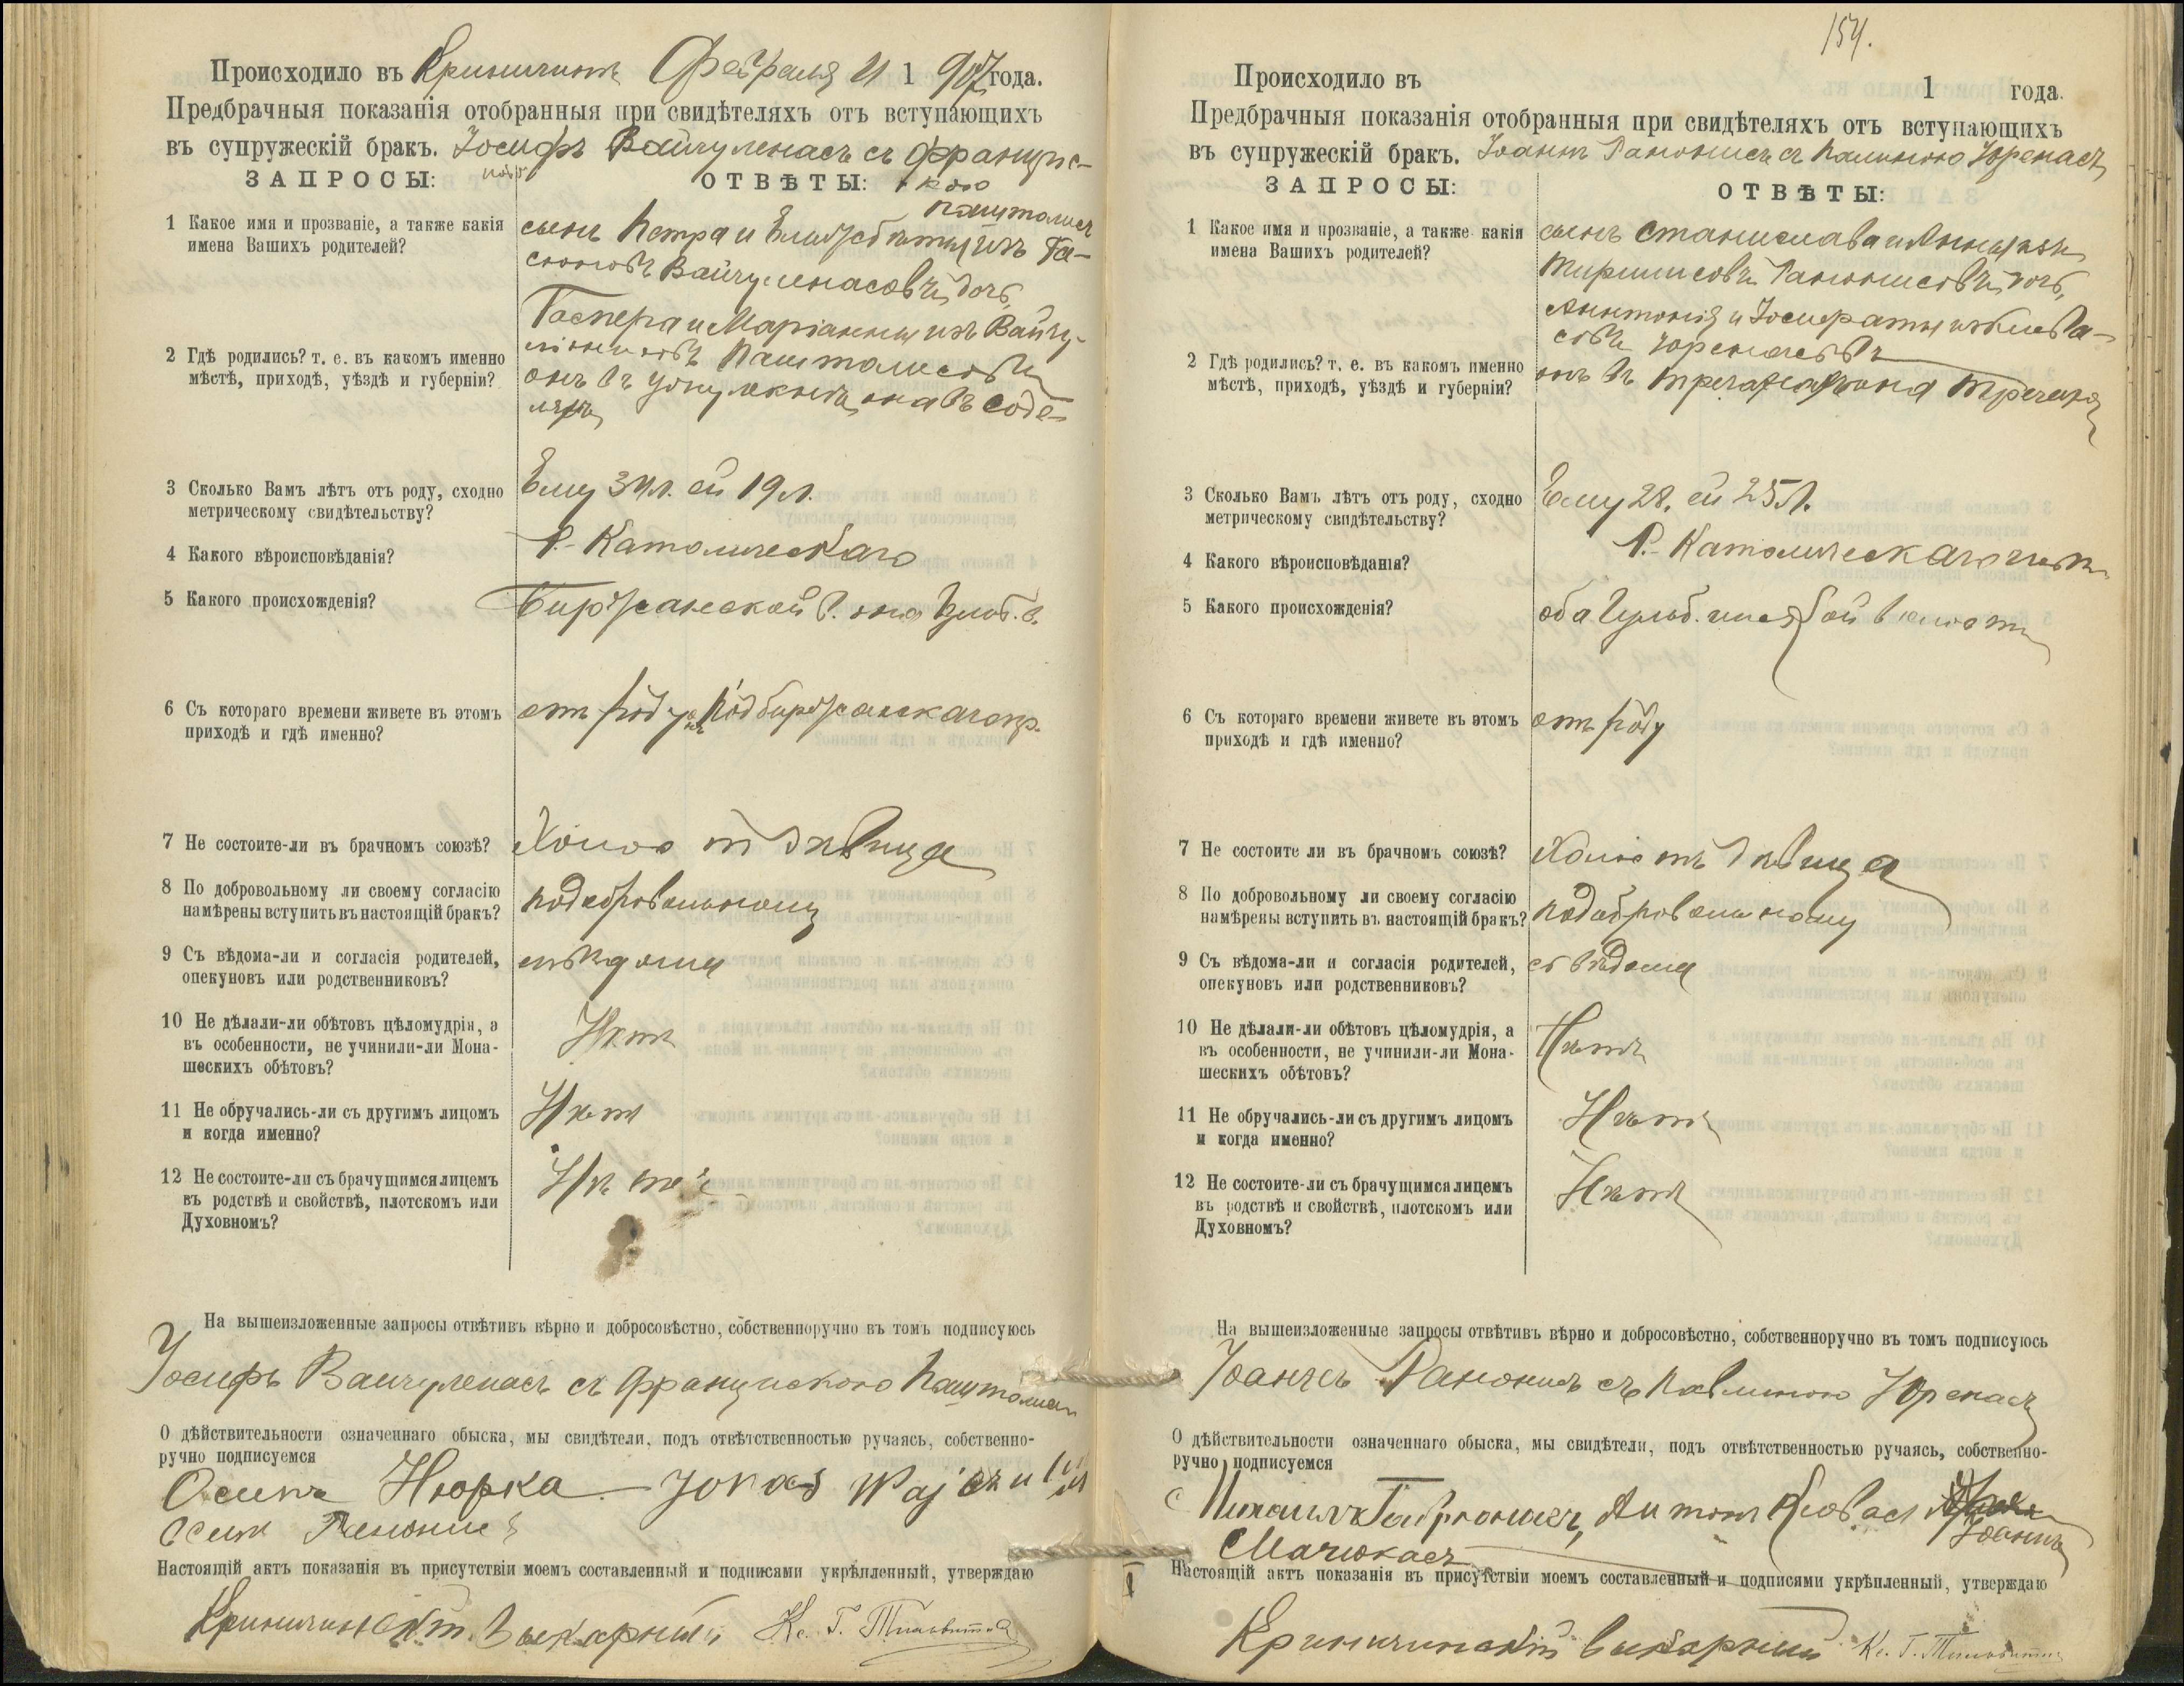 Происходило въ Криничинъ Февраля 21 1907 года.
Предбрачныя показанія отобранныя при свидѣтеляхъ отъ вступающихъ
въ супружескій бракъ. Іосифъ Вайчуленасъ съ Францис-
кою
ЗАПРОСЫ: ОТВѢТЫ:
1 Какое имя и прозваніе, а также какія
имена Вашихъ родителей?
сынъ Петра и Елизабеты изъ
Вайчуленасовъ, дочь
Гаспера и Маріанны изъ Вайчу-
2 Гдѣ родились? т. е. въ какомъ именно
мѣстѣ, приходѣ, уѣздѣ и губерніи?
онъ въ она въ
3 Сколько Вамъ лѣтъ отъ роду, сходно
метрическому свидѣтельству?
Ему 34 л. ей 19 л.
4 Какого вѣроисповѣданія?
Р.-Католическаго
5 Какого происхожденія?
Биржанской в. она
6 Съ котораго времени живете въ этомъ
приходѣ и гдѣ именно?
отъ роду Подбиржанскаго пр.
7 Не состоите-ли въ брачномъ союзѣ?
Холостъ дѣвица
8 По добровольному ли своему согласію
намѣрены вступить въ настоящій бракъ?
по добровольному
9 Съ вѣдома-ли и согласія родителей,
опекуновъ или родственниковъ?
съ вѣдома
10 Не дѣлали-ли обѣтовъ цѣломудрія, а
въ особенности, не учинили-ли Мона-
шескихъ обѣтовъ?
Нѣтъ
11 Не обручались-ли съ другимъ лицомъ
и когда именно?
Нѣтъ
12 Не состоите-ли съ брачущимся лицемъ
въ родствѣ и свойствѣ, плотскомъ или
Духовномъ?
Нѣтъ
На вышеизложенные запросы отвѣтивъ вѣрно и добросовѣстно, собственноручно въ томъ подписуюсь
Іосифъ Вайчуленасъ съ Францискою
О дѣйствительности означеннаго обыска, мы свидѣтели, подъ отвѣтственностью ручаясь, собственно-
ручно подписуемся
Осипъ Нюрка Jonas
Осип
Настоящій актъ показанія въ присутствіи моемъ составленный и подписами укрѣпленный, утверждаю
Криничинскій Викарный Кс. Г.
154.
Происходило въ 1 года.
Предбрачныя показанія отобранныя при свидѣтеляхъ отъ вступающихъ
въ супружескій бракъ. Іоаннъ Ранонисъ съ Павлиною Юренасъ
ЗАПРОСЫ: ОТВѢТЫ:
1 Какое имя и прозваніе, а также какія
имена Вашихъ родителей?
сынъ Станислава и Анны изъ
дочь
Антонія и Іосифаты изъ
2 Гдѣ родились? т. е. въ какомъ именно
мѣстѣ, приходѣ, уѣздѣ и губерніи?
онъ въ она
3 Сколько Вамъ лѣтъ отъ роду, сходно
метрическому свидѣтельству?
Ему 28. ей 25 л.
4 Какого вѣроисповѣданія?
Р.-Католическаго
5 Какого происхожденія?
оба волости
6 Съ котораго времени живете въ этомъ
приходѣ и гдѣ именно?
отъ роду
7 Не состоите ли въ брачномъ союзѣ?
Холостъ дѣвица
8 По добровольному ли своему согласію
намѣрены вступить въ настоящій бракъ?
по добровольному
9 Съ вѣдома-ли и согласія родителей,
опекуновъ или родственниковъ?
съ вѣдома
10 Не дѣлали-ли обѣтовъ цѣломудрія, а
въ особенности, не учинили-ли Мона-
шескихъ обѣтовъ?
Нѣтъ
11 Не обручались-ли съ другимъ лицомъ
и когда именно?
Нѣтъ
12 Не состоите-ли съ брачущимся лицемъ
въ родствѣ и свойствѣ, плотскомъ или
Духовномъ?
Нѣтъ
На вышеизложенные запросы отвѣтивъ вѣрно и добросовѣстно, собственноручно въ томъ подписуюсь
Іоаннъ Ранонисъ съ Павлиною Юренасъ
О дѣйствительности означеннаго обыска, мы свидѣтели, подъ отвѣтственностью ручаясь, собственно-
ручно подписуемся
Антон Іоаннъ
Мачюкасъ
Настоящій актъ показанія въ присутствіи моемъ составленный и подписями укрѣпленный, утверждаю
Криничинскій викарный Кс. Г.